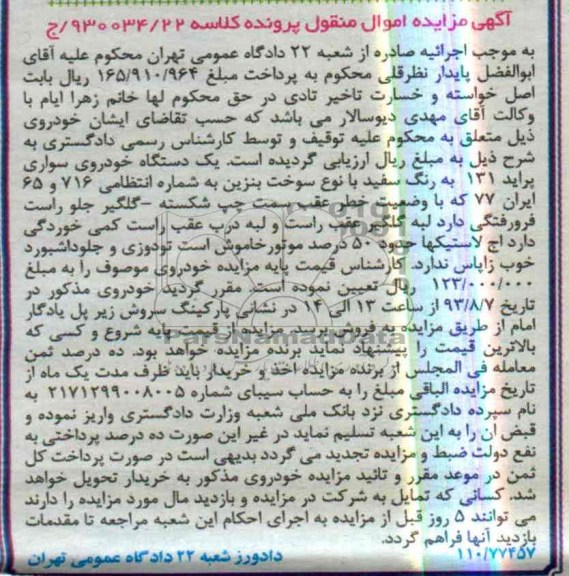 آگهی مزایده اموال منقول پرونده کلاسه ۹۳۰۰۳۴/۲۲/ج
به موجب اجرائیه صادره از شعبه ۲۲ دادگاه عمومی تهران محکوم علیه آقای
ابوالفضل پایدار نظرقلی محکوم به پرداخت مبلغ ۱۶۵/۹۱۰/۹۶۴ ریال بابت
اصل خواسته و خسارت تاخیر تادی در حق محکوم لها خانم زهرا ایام با
وکالت آقای مهدی دیوسالار می باشد که حسب تقاضای ایشان خودروی
ذیل متعلق به محکوم علیه توقیف و توسط کارشناس رسمی دادگستری به
شرح ذیل به مبلغ ریال ارزیابی گردیده است. یک دستگاه خودروی سواری
پراید ۱۳۱ به رنگ سفید با نوع سوخت بنزین به شماره انتظامی ۷۱۶ و ۶۵
ایران ۷۷ که با وضعیت خطر عقب سمت چپ شکسته -گلگیر جلو راست
فرورفتگی دارد لبه گلگیر عقب راست و لبه درب عقب راست کمی خوردگی
دارد اج لاستیکها حدود ۵۰ درصد موتور خاموش است تودوزی و جلوداشبورد
خوب زاپاس ندارد. کارشناس قیمت پایه مزایده خودروی موصوف را به مبلغ
۱۲۳/۰۰۰/۰۰۰ ریال تعیین نموده است. مقرر گردید خودروی مذکور در
تاریخ ۹۳/۸/۷ از ساعت ۱۳ الی ۱۴ در نشانی پارکینگ سروش زیر پل یادگار
امام از طریق مزایده به فروش برسد. مزایده از قیمت پایه شروع و کسی که
بالاترین قیمت را پیشنهاد نماید برنده مزایده خواهد بود. ده درصد ثمن
معامله فی المجلس از برنده مزایده اخذ و خریدار باید ظرف مدت یک ماه از
تاریخ مزایده الباقی مبلغ را به حساب سیبای شماره ۲۱۷۱۲۹۹۰۰۸۰۰۵ به
نام سپرده دادگستری نزد بانک ملی شعبه وزارت دادگستری واریز نموده و
قبض آن را به این شعبه تسلیم نماید در غیر این صورت ده درصد پرداختی به
نفع دولت ضبط و مزایده تجدید می گردد بدیهی است در صورت پرداخت کل
ثمن در موعد مقرر و تائید مزایده خودروی مذکور به خریدار تحویل خواهد
شد. کسانی که تمایل به شرکت در مزایده و بازدید مال مورد مزایده را دارند
می توانند ۵ روز قبل از مزایده به اجرای احکام این شعبه مراجعه تا مقدمات
بازدید آنها فراهم گردد.
۱۱۰/۷۷۴۵۷ دادورز شعبه ۲۲ دادگاه عمومی تهران
ParsNamadData